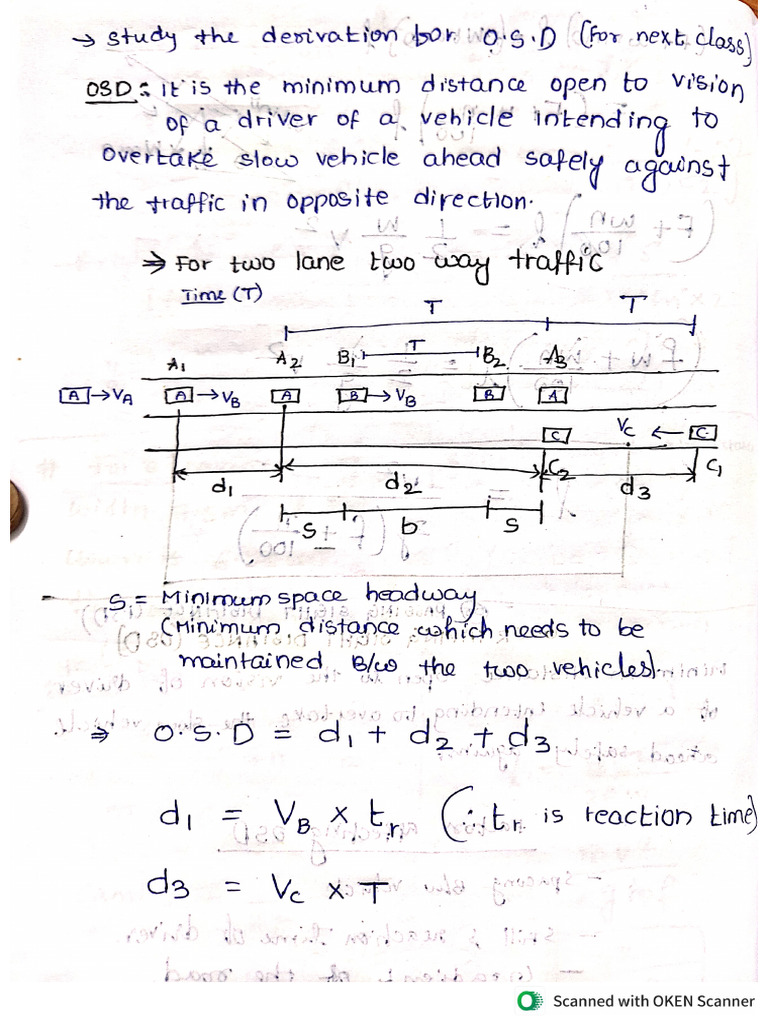 → study the derivation for O.S.D (For next class)
OSD : it is the minimum distance open to vision
of a driver of a vehicle intending to
overtake slow vehicle ahead safely against
the traffic in opposite direction.
⇒ For two lane two way traffic
Time (T)
T T
A1 A2 B1 T B2 A3
A → VA A → VB A B → VB B A
C VC ← C
d1 d2 C2 d3 C1
s b s
- S = Minimum space headway
(Minimum distance which needs to be
maintained B/w the two vehicles).
⇒ O.S.D = d1 + d2 + d3
d1 = VB × tr (∵ tr is reaction time)
d3 = VC × T
Scanned with OKEN Scanner